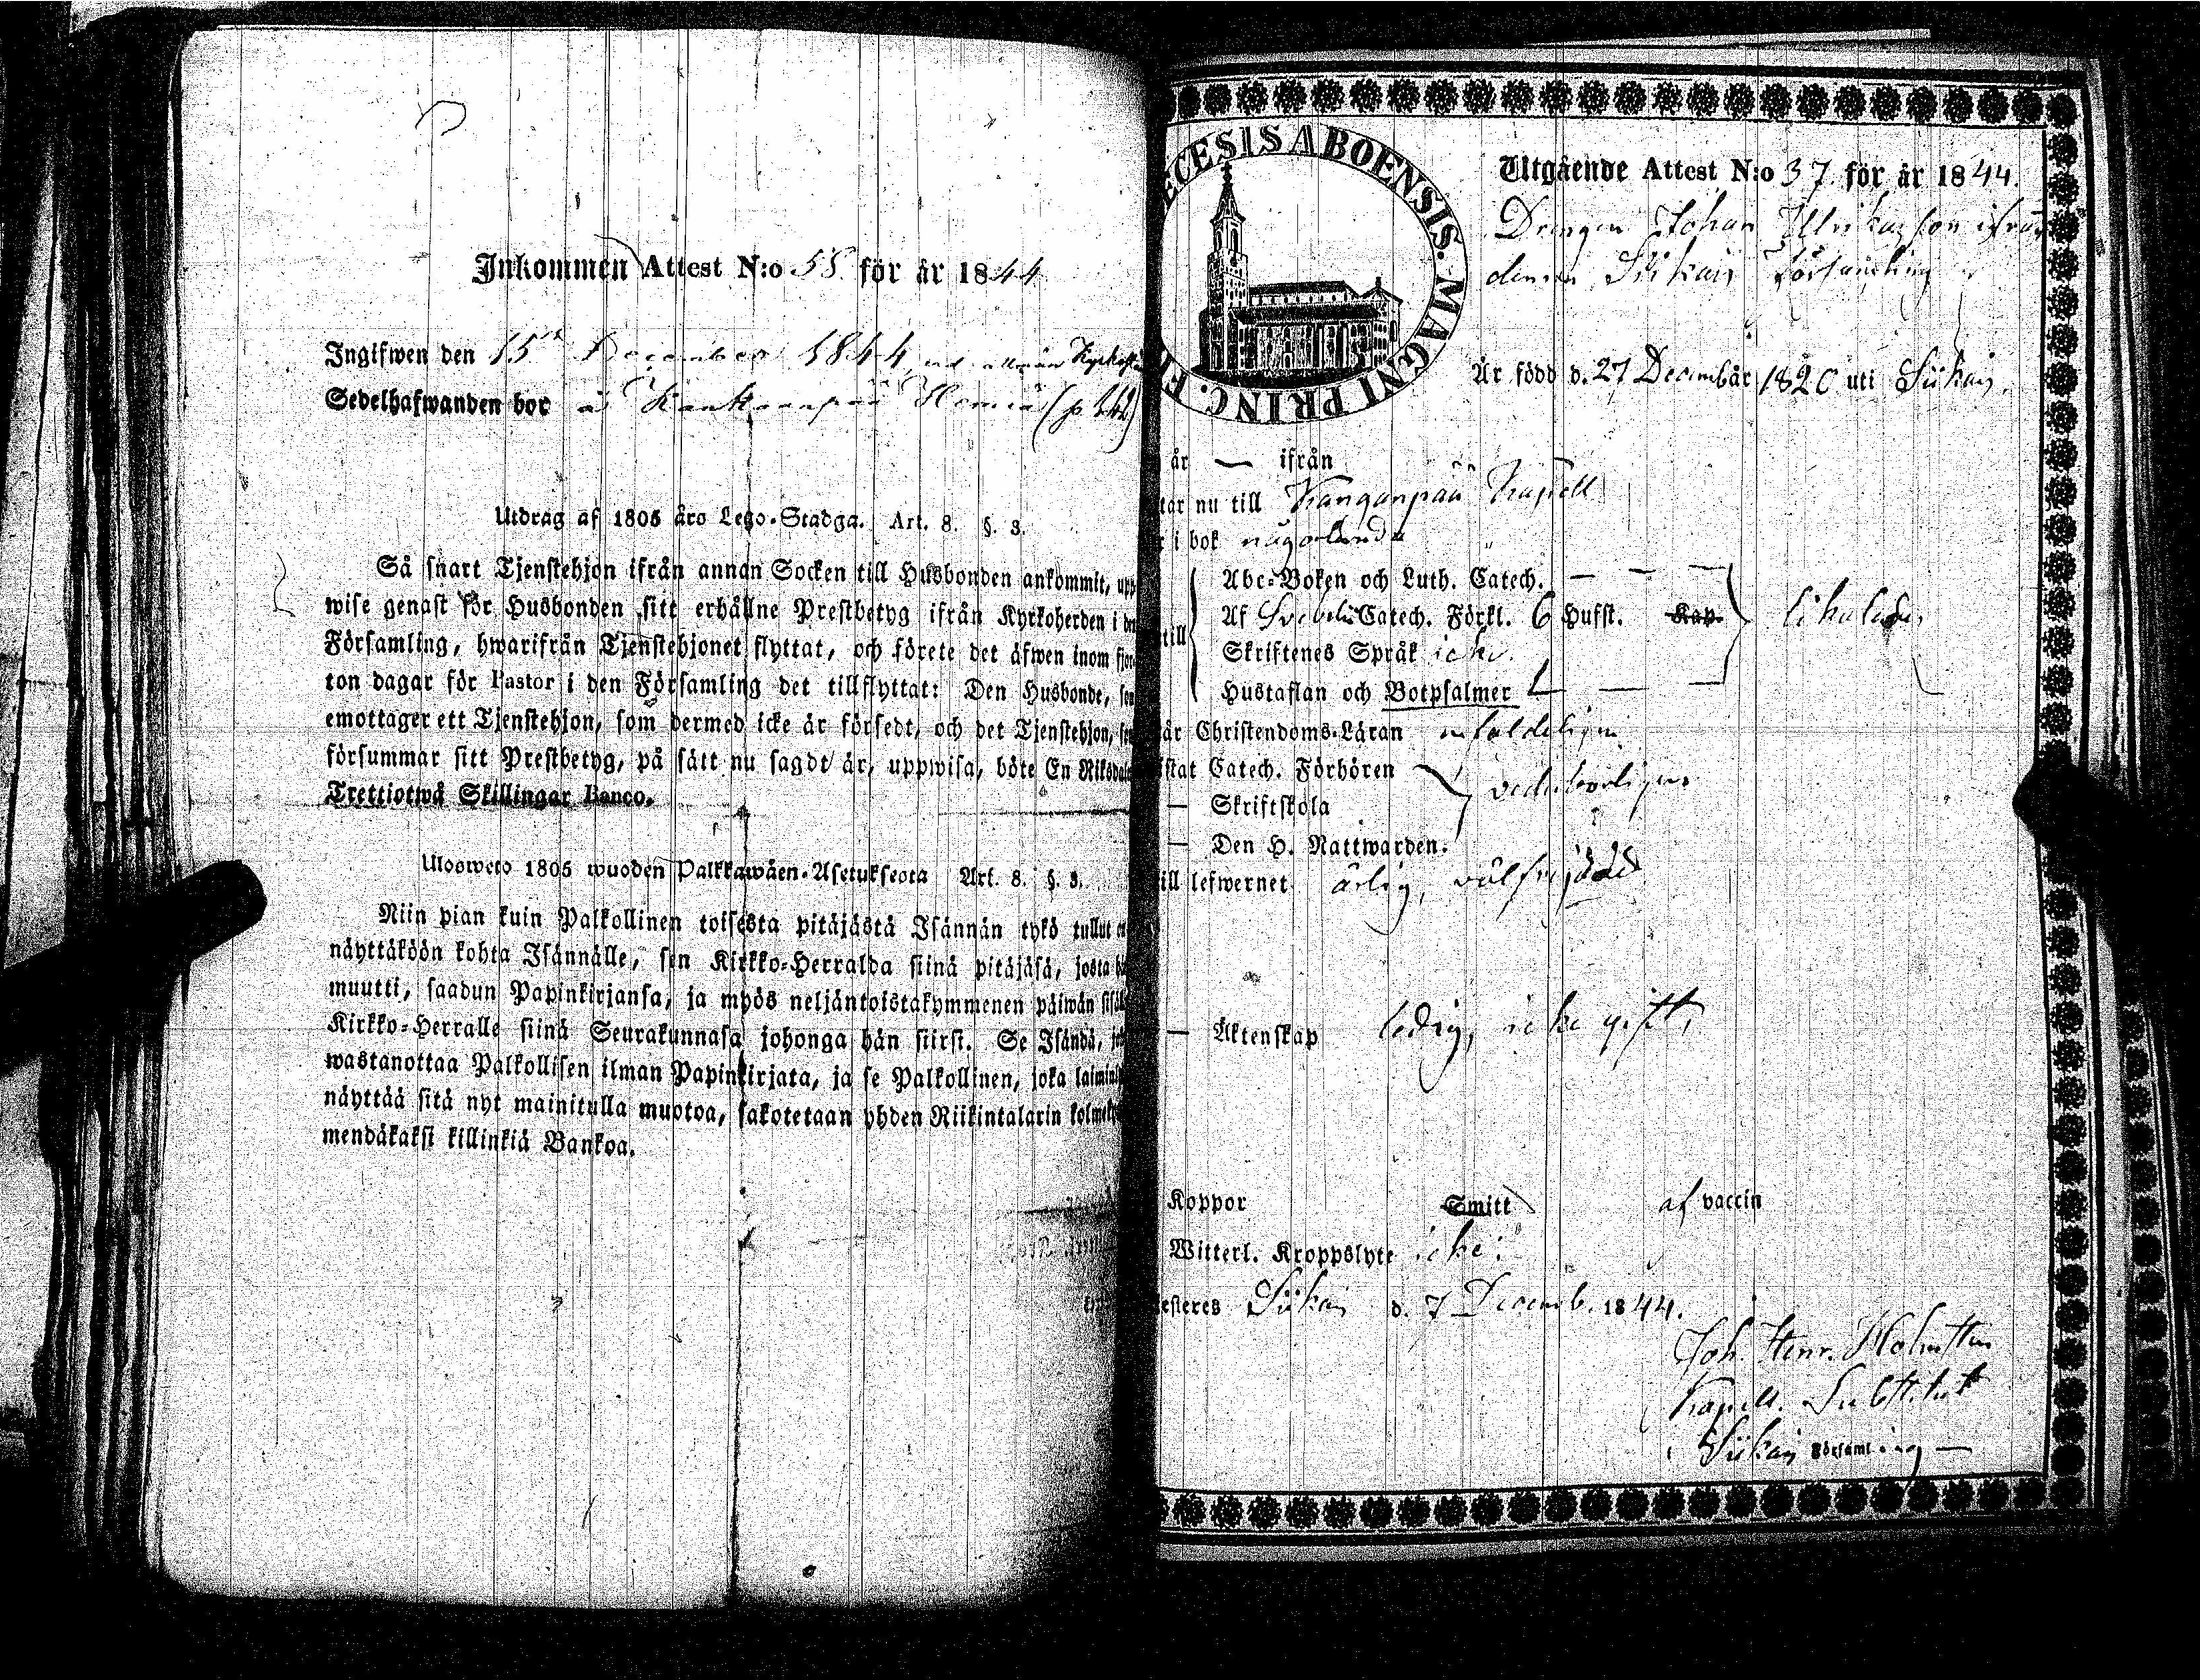 Inkommen Attest N:o 58 för år 1844
Ingifwen den 15 December 1844
Sedelhafwanden bor å Kankaanpää
Utdrag af 1805 års Lego-Stadga. Art. 8. §. 3.
Så snart Tjenstehjon ifrån annan Socken till Husbonden ankommit, upp
wise genast för Husbonden sitt erhållne Prestbetyg ifrån Kyrkoherden i den
Församling, hwarifrån Tjenstehjonet flyttat, och förete det äfwen inom fjor-
ton dagar för Pastor i den Församling det tillflyttat: Den Husbonde, som
emottager ett Tjenstehjon, som dermed icke är försedt, och det Tjenstehjon, som
försummar sitt Prestbetyg, på sätt nu sagdt är, uppwisa, böte En Riksdaler
Trettiotwå Skillingar Banco.
Ulosweto 1805 wuoden Palkkawäen-Asetuksesta Art. 8. §. 3.
Niin pian kuin Palkollinen toisesta pitäjästä Isännän tykö tullut
näyttäköön kohta Isännälle, sen Kirkko-Herralda siinä pitäjäsä, josta
muutti, saadun Papinkirjansa, ja myös neljäntoistakymmenen päiwän
Kirkko-Herralle siinä Seurakunnasa johonga hän siirsi. Se Isändä,
wastanottaa Palkollisen ilman Papinkirjata, ja se Palkollinen, joka
näyttää sitä nyt mainitulla muotoa, sakotetaan yhden Riikintalarin
mendäkaksi killinkiä Bankoa.
ECESIS ABOENSIS. MAGNI PRINC. FI
Utgående Attest N:o 37 för år 1844.
Drengen Johan Ulrikasson ifrån
denna Siikais Församling
Är född d. 27 Decembär 1820 uti Siikais.
år — ifrån
tar nu till Kanganpää Kapell
i bok någorlunda
Abc-Boken och Luth. Catech. — — —
till Af Svebelii Catech. Förkl. 6 Hufst. Kap. likaledes
Skriftenes Språk icke.
Hustaflan och Botpsalmer — —
är Christendoms-Läran enfaldeligen
stat Catech. Förhören
— Skriftskola vederbörligen
— Den H. Nattwarden.
ill lefwernet ärlig, välfrejdad
— Äktenskap ledig, icke gift,
Koppor Smitt af vaccin
Witterl. Kroppslyte icke.
esteres Siikais d. 7 Decemb. 1844.
Joh. Henr. Holmsten
Kapell. Substitut
Siikais Församling —